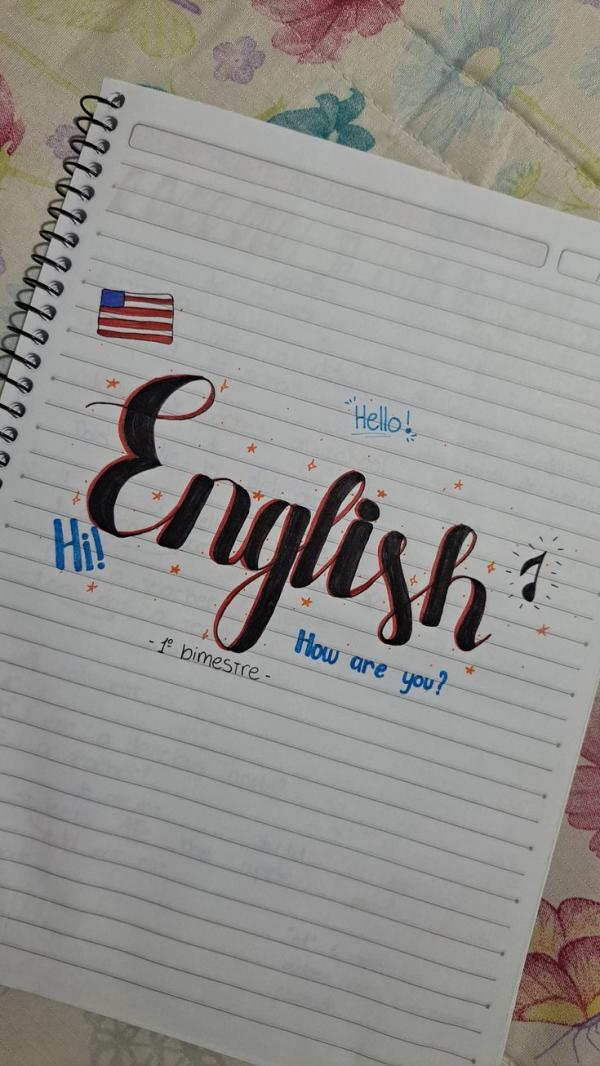 Hello!
English
Hi!
How are you?
- 1º bimestre -